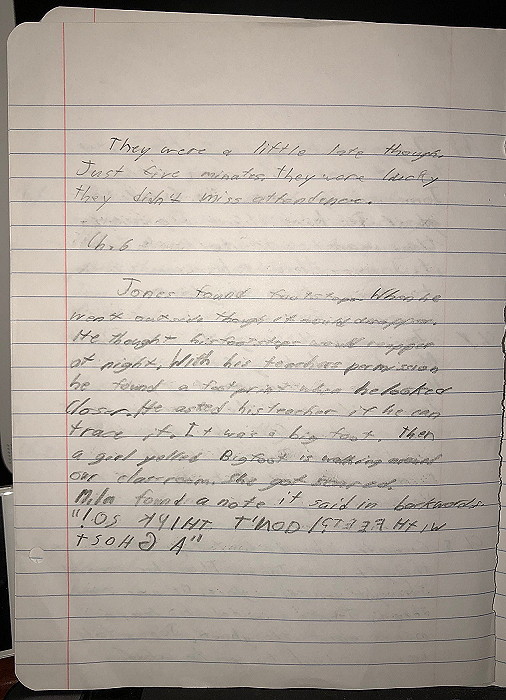 They were a little late though.
Just five minutes, they were lucky
they didn't miss attendence.
Ch. 6
Jones found footsteps When he
went outside though it would disappear.
He thought his footsteps would reappear
at night. With his teachers permission
he found a footprint when he looked
closer. He asked his teacher if he can
trace it. It was a big foot. Then
a girl yelled Bigfoot is walking around
our classroom. She got scared.
found a note it said in backwords.
"!OS KNIHT T'NOD FEET HTIW
TSOHG A"